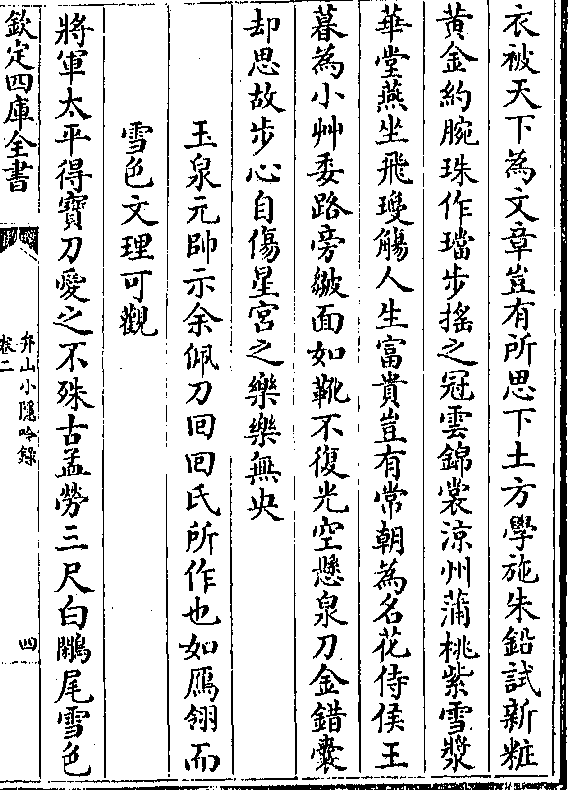 衣被天下為文章豈有所思下土方學施朱鉛試新粧
黃金約腕珠作璫步搖之冠雲錦裳涼州蒲桃紫雪漿
華堂燕坐飛瓊觴人生富貴豈有常朝為名花侍侯王
暮為小艸委路旁皴面如靴不復光空懸泉刀金錯囊
却思故步心自傷星宮之樂樂無央
玉泉元帥示余佩刀回回氏所作也如鴈翎而
雪色文理可觀
將軍太平得寶刀愛之不殊古孟勞三尺白鷳尾雪色
欽定四庫全書
弁山小隱吟錄
卷二
四